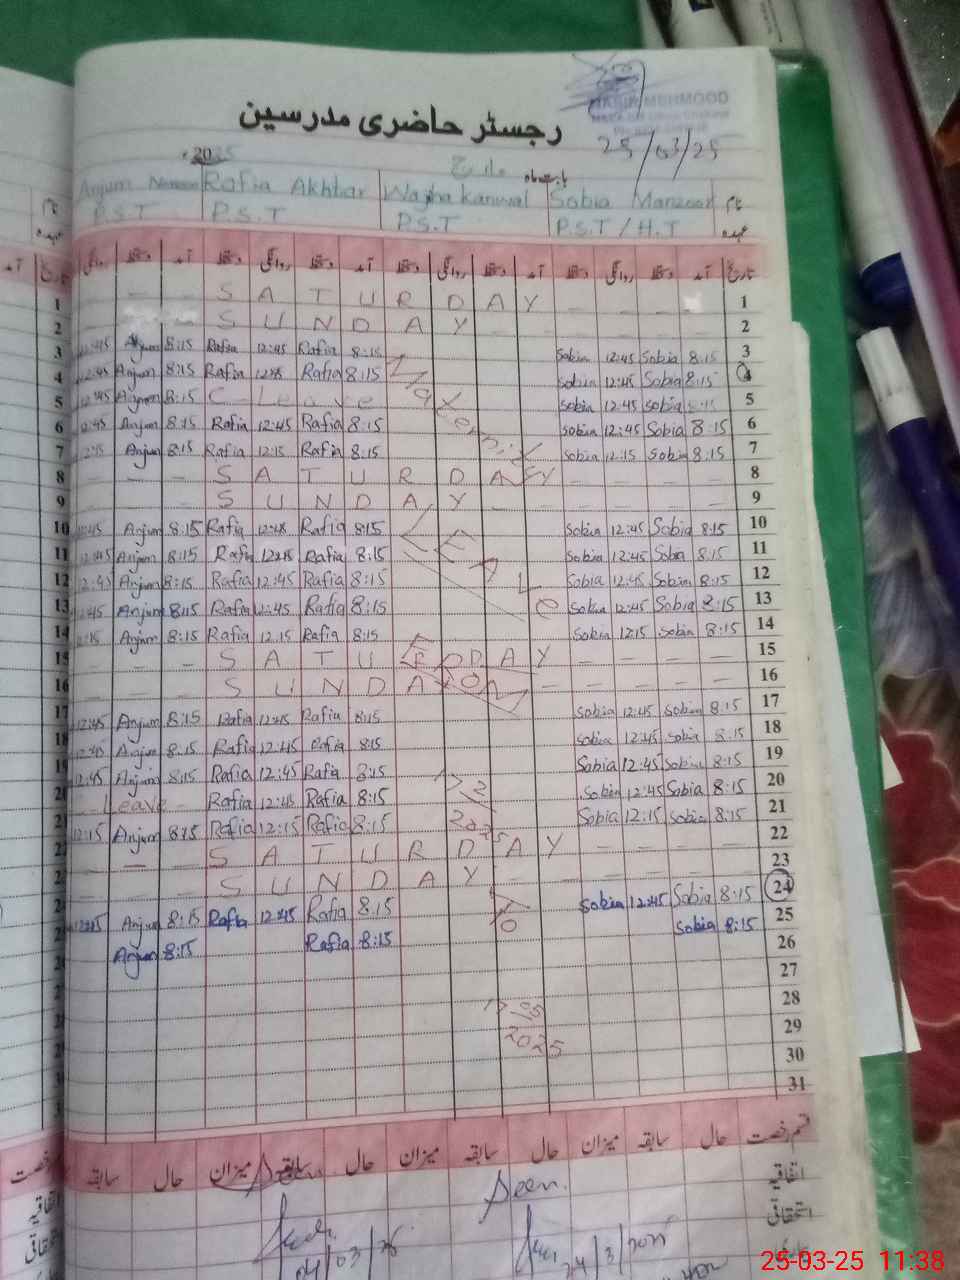 رجسٹر حاضری مدرسین
MEHMOOD
25/03/25
2025ء بابت ماہ مارچ
Anjum Rafia Akhbar Wajiha Kanwal Sobia Manzoor نام
P.S.T P.S.T P.S.T P.S.T / H.T عہدہ
روانگی دستخط آمد دستخط روانگی دستخط آمد دستخط روانگی دستخط آمد دستخط روانگی دستخط آمد تاریخ
SATURDAY 1
SUNDAY 2
12:45 Anjum 8:15 Rafia 12:45 Rafia 8:15 Sobia 12:45 Sobia 8:15 3
12:45 Anjum 8:15 Rafia 12:45 Rafia 8:15 Sobia 12:45 Sobia 8:15 4
12:45 Anjum 8:15 C-Leave Sobia 12:45 Sobia 8:15 5
12:45 Anjum 8:15 Rafia 12:45 Rafia 8:15 Sobia 12:45 Sobia 8:15 6
12:15 Anjum 8:15 Rafia 12:15 Rafia 8:15 Sobia 12:15 Sobia 8:15 7
SATURDAY 8
SUNDAY 9
12:45 Anjum 8:15 Rafia 12:45 Rafia 8:15 Sobia 12:45 Sobia 8:15 10
12:45 Anjum 8:15 Rafia 12:45 Rafia 8:15 Sobia 12:45 Sobia 8:15 11
12:45 Anjum 8:15 Rafia 12:45 Rafia 8:15 Sobia 12:45 Sobia 8:15 12
12:45 Anjum 8:15 Rafia 12:45 Rafia 8:15 Sobia 12:45 Sobia 8:15 13
12:15 Anjum 8:15 Rafia 12:15 Rafia 8:15 Sobia 12:15 Sobia 8:15 14
SATURDAY 15
SUNDAY 16
12:45 Anjum 8:15 Rafia 12:45 Rafia 8:15 Sobia 12:45 Sobia 8:15 17
12:45 Anjum 8:15 Rafia 12:45 Rafia 8:15 Sobia 12:45 Sobia 8:15 18
12:45 Anjum 8:15 Rafia 12:45 Rafia 8:15 Sobia 12:45 Sobia 8:15 19
Leave Rafia 12:45 Rafia 8:15 Sobia 12:45 Sobia 8:15 20
12:15 Anjum 8:15 Rafia 12:15 Rafia 8:15 Sobia 12:15 Sobia 8:15 21
SATURDAY 22
SUNDAY 23
Anjum 8:15 Rafia 12:45 Rafia 8:15 Sobia 12:45 Sobia 8:15 24
Anjum 8:15 Rafia 8:15 Sobia 8:15 25
26
27
28
29
30
31
Maternity
LEAVE
From
17-2
2025
To
17-05
2025
سابقہ حال میزان سابقہ حال میزان سابقہ حال میزان سابقہ حال قسم رخصت
اتفاقیہ
استحقاقی
Seen
04/03/25
Seen.
24/3/2025
25-03-25 11:38